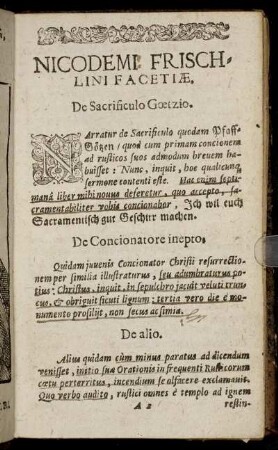 NICODEMI FRISCH-
LINI FACETIÆ.
De Sacrificulo Gœtzio.
NArratur de Sacrificulo quodam Pfaff-
Götzen / quod cum primam concionem
ad rusticos suos admodum brevem ha-
buisset: Nunc, inquit, hoc qualicunq;
sermone contenti este. Hac enim septi-
manâ liber mihi novus deferetur, quo accepto, sa-
cramentabiliter vobis concionabor, Ich wil euch
Sacramentisch gut Geschirr machen.
De Concionatore inepto.
Quidam juvenis Concionator Christi resurrectio-
nem per similia illustraturus, seu adumbraturus po-
tius: Christus, inquit, in sepulchro jacuit veluti trun-
cus, & obriguit sicut lignum: tertia vero die è mo-
numento prosilijt, non secus ac simia.
De alio.
Alius quidam cùm minus paratus ad dicendum
venisset, initio suæ Orationis in frequenti Rusticorum
cœtu perterritus, incendium se olfacere exclamavit.
Quo verbo audito, rustici omnes è templo ad ignem
A 2 restin-